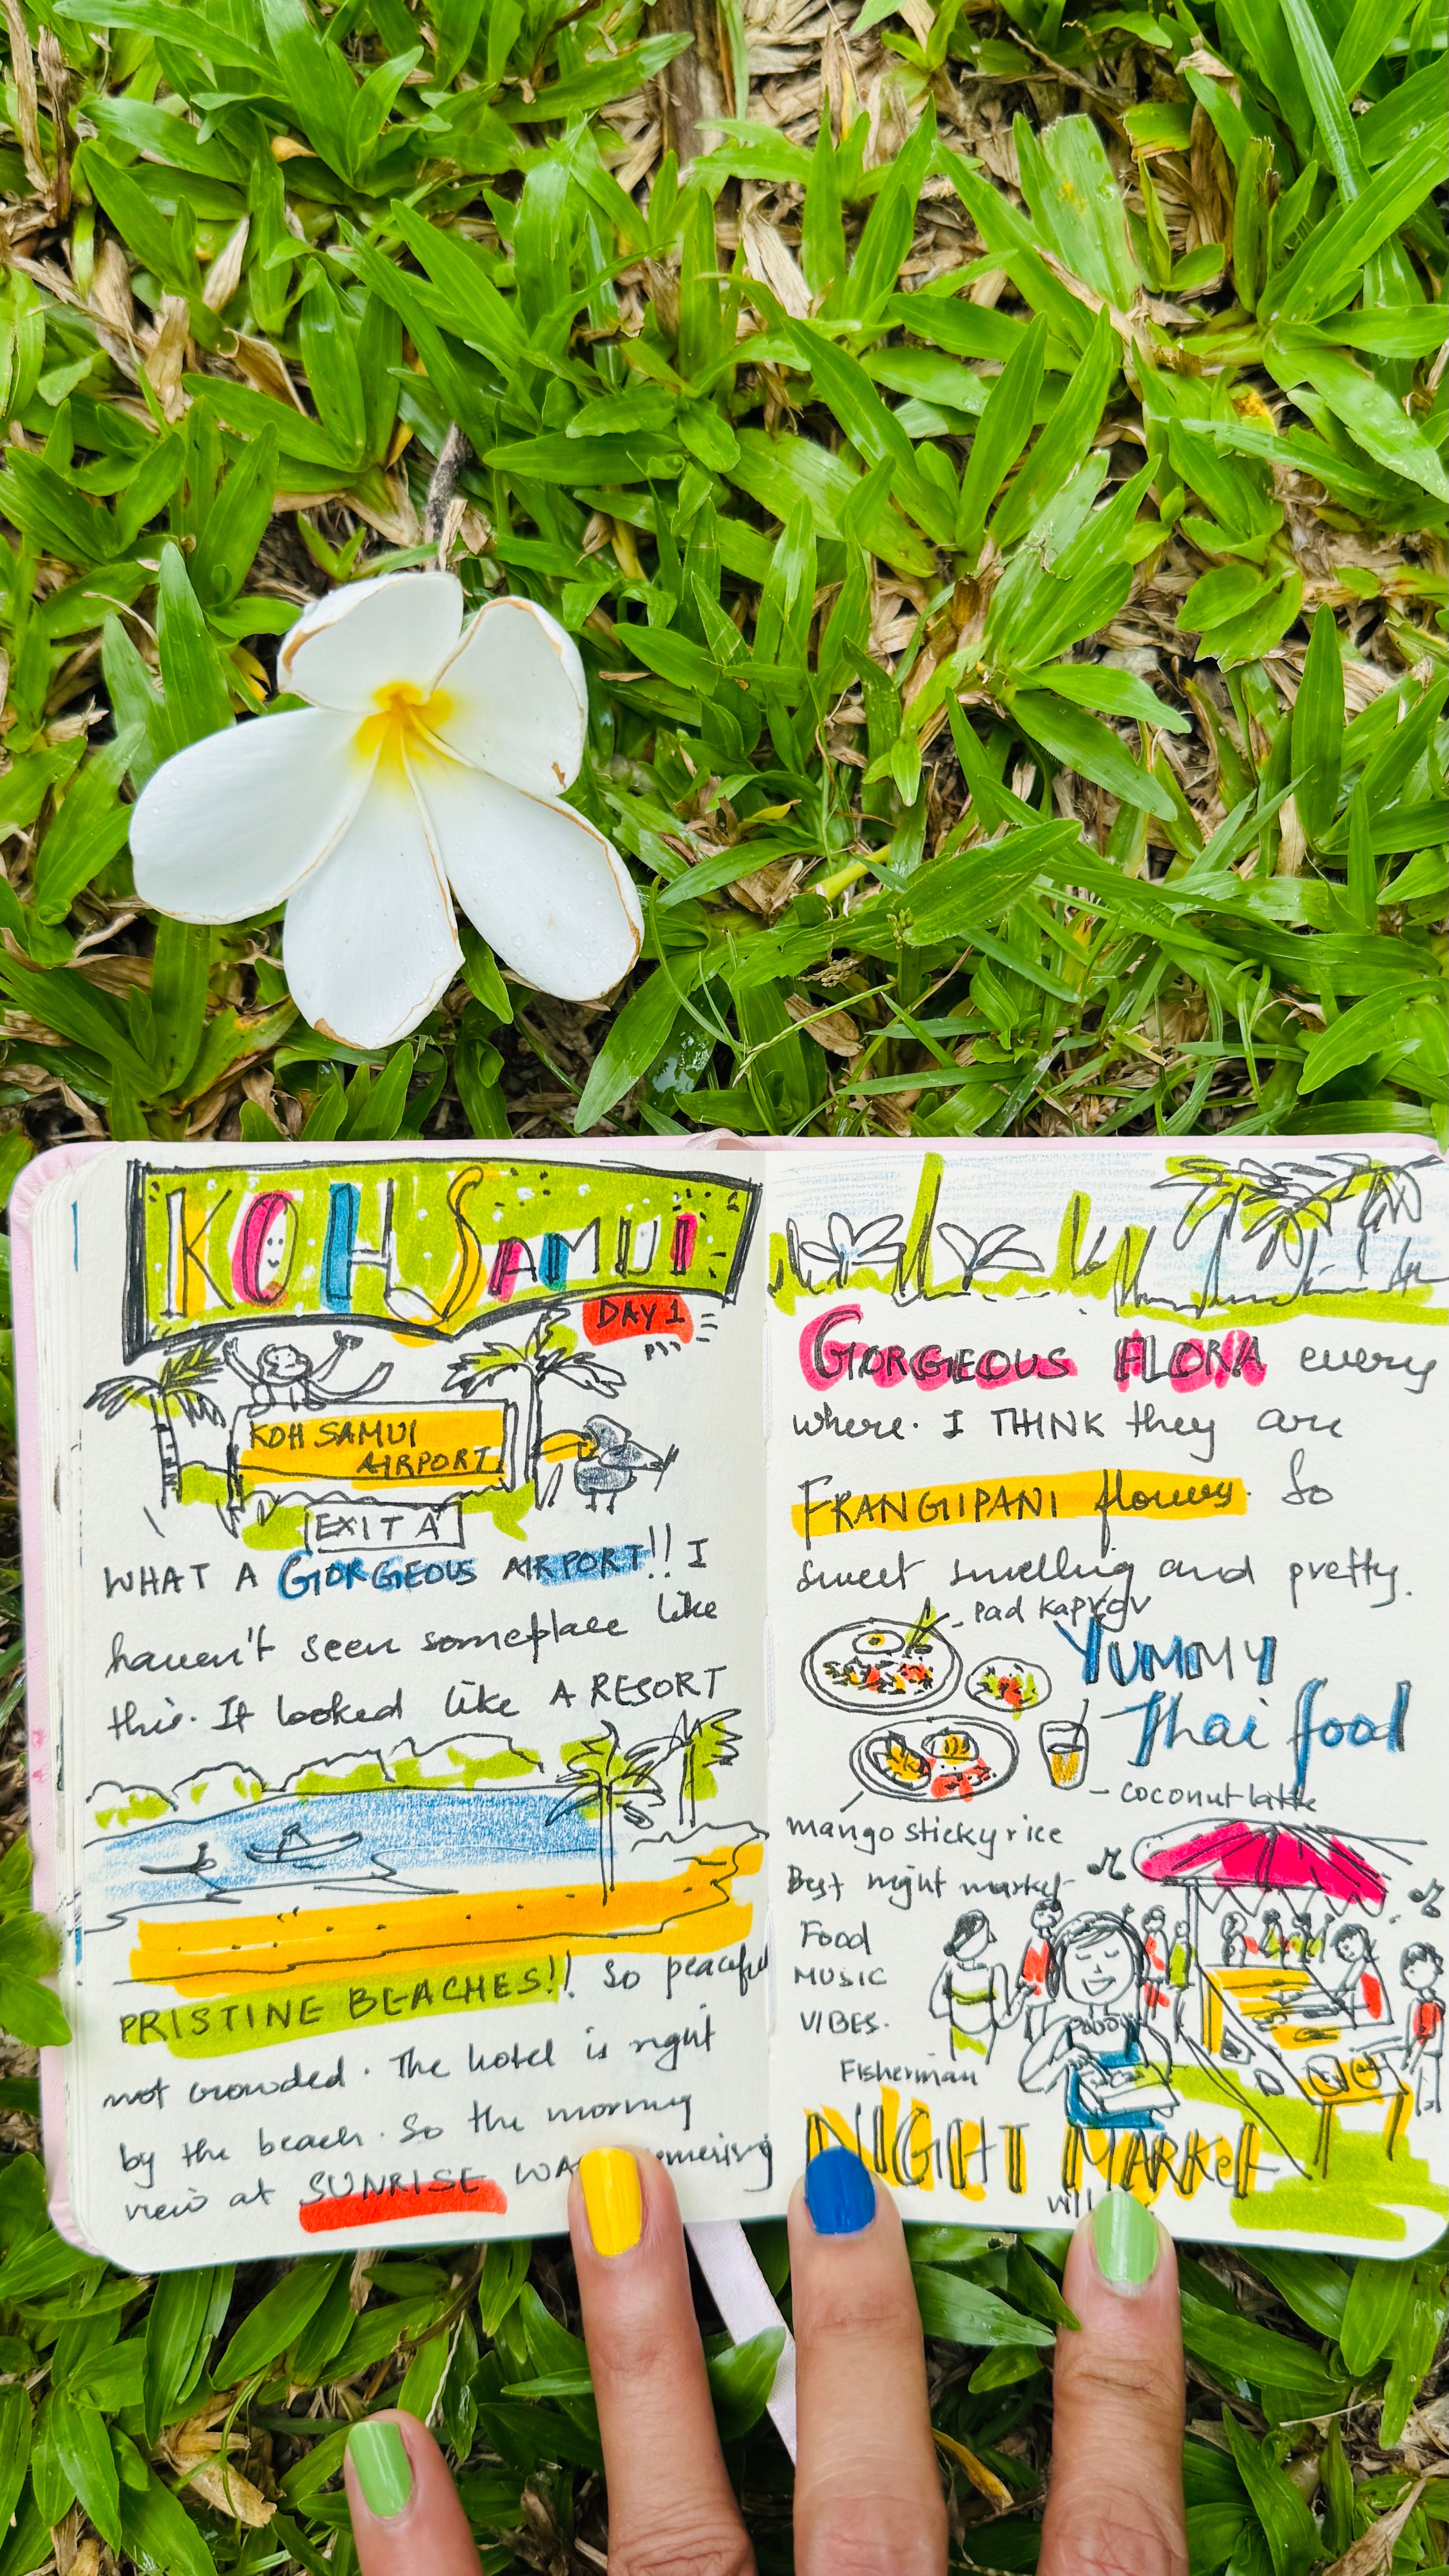 KOH SAMUI
DAY 1
KOH SAMUI
AIRPORT
EXIT A
WHAT A GORGEOUS AIRPORT!! I
haven't seen someplace like
this. It looked like A RESORT
PRISTINE BEACHES!! So peaceful
not crowded. The hotel is right
by the beach. So the morning
view at SUNRISE WAS
GORGEOUS FLORA every
where. I THINK they are
FRANGIPANI flowers. So
sweet smelling and pretty.
Pad Kaprov
YUMMY
Thai food
- coconut latte
mango sticky rice
Best night market
Food
MUSIC
VIBES.
Fisherman
NIGHT MARKET